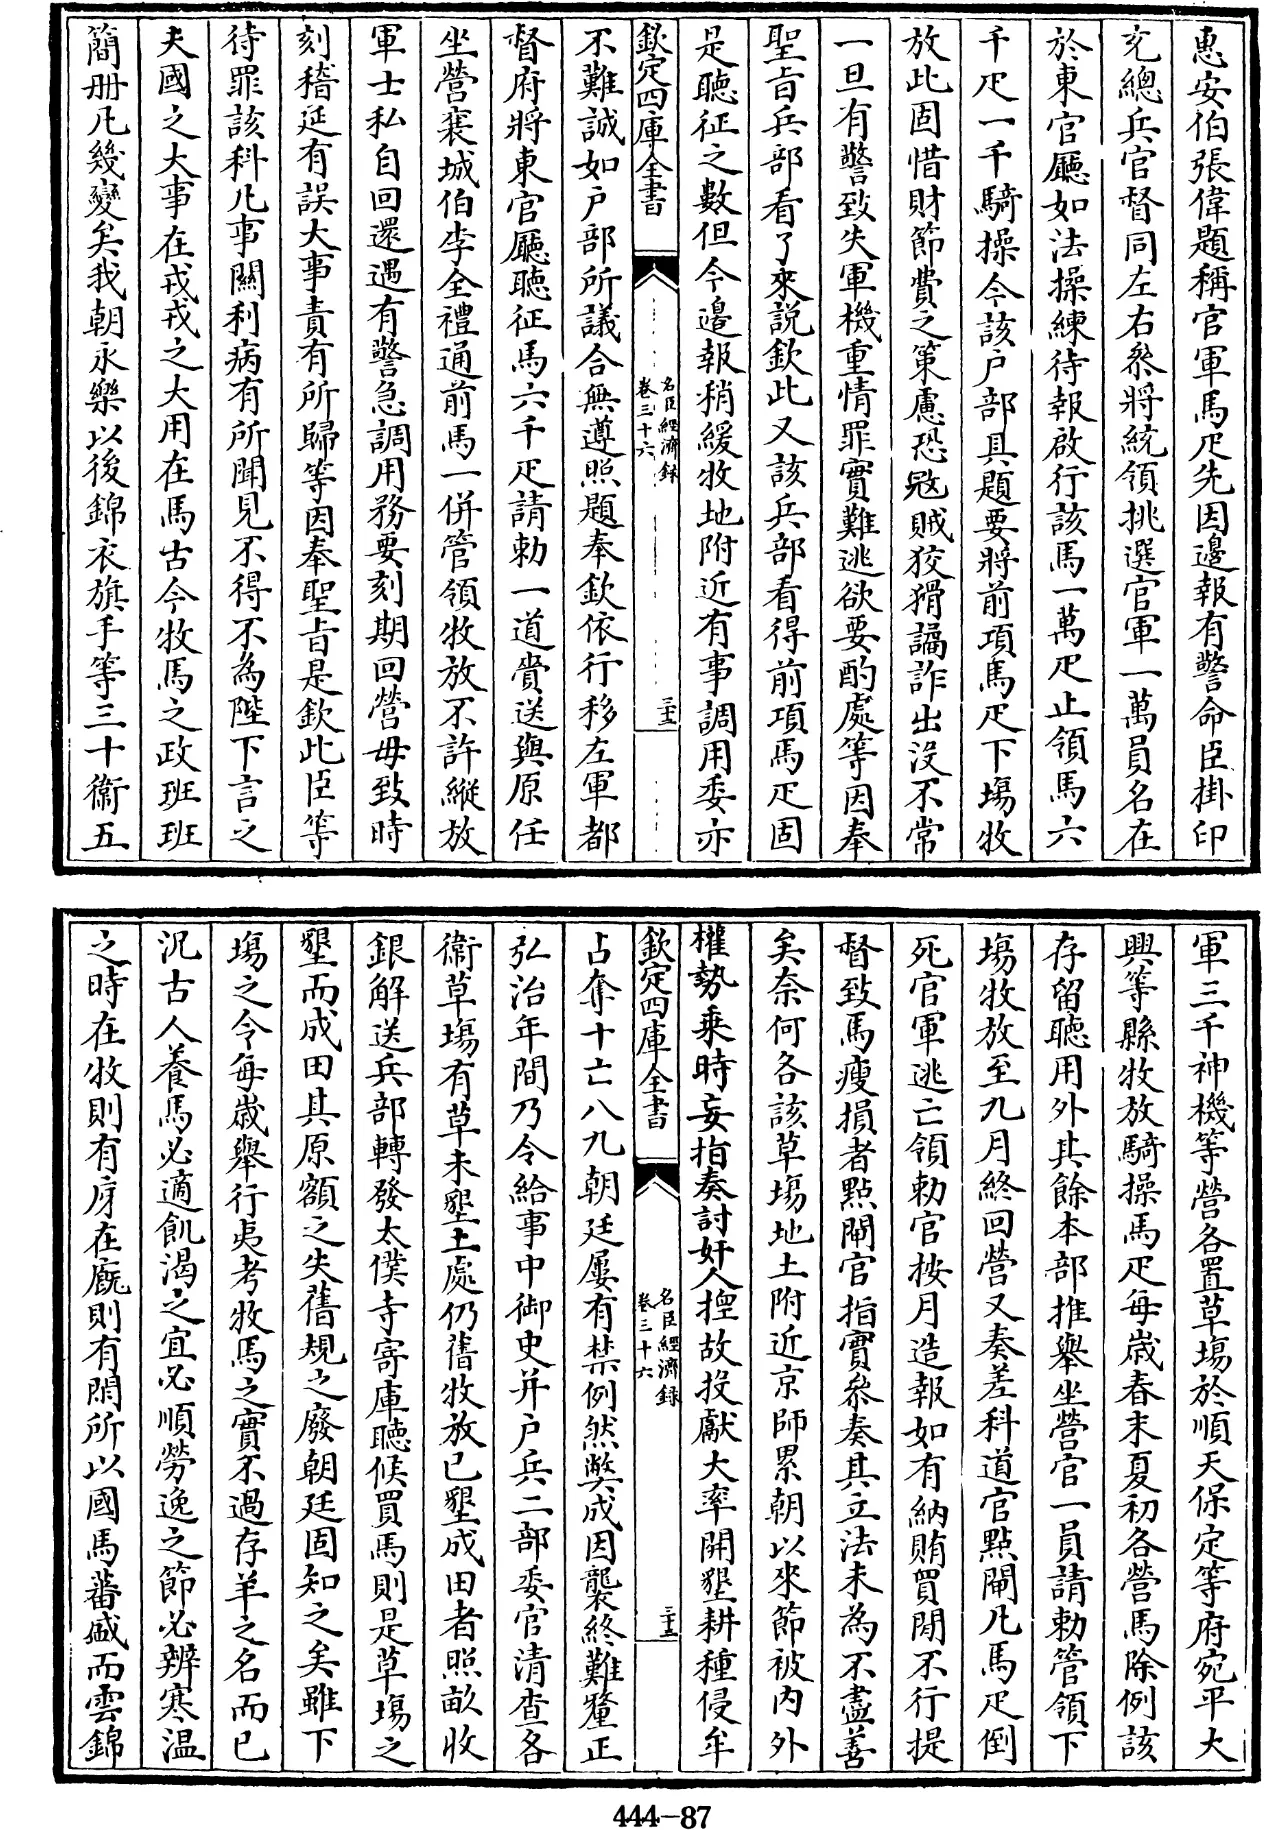 惠安伯張偉題稱官軍馬疋先因邊報有警命臣掛印
充總兵官督同左右叅將統領挑選官軍一萬員名在
於東官廳如法操練待報啟行該馬一萬疋止領馬六
千疋一千騎操今該户部具題要將前項馬疋下場牧
放此固惜財節費之策慮恐冦賊狡猾譎詐出沒不常
一旦有警致失軍機重情罪實難逃欲要酌處等因奉
聖㫖兵部看了來説欽此又該兵部看得前項馬疋固
是聽征之數但今邉報稍緩牧地附近有事調用委亦
欽定四庫全書
名臣經濟錄
卷三十六
三十二
不難誠如户部所議合無遵照題奉欽依行移左軍都
督府將東官廳聽征馬六千疋請勅一道賫送與原任
坐營襄城伯李全禮通前馬一併管領牧放不許縱放
軍士私自回還遇有警急調用務要刻期回營毋致時
刻稽延有誤大事責有所歸等因奉聖㫖是欽此臣等
待罪該科凡事關利病有所聞見不得不為陛下言之
夫國之大事在戎戎之大用在馬古今牧馬之政班班
簡冊凡幾變矣我朝永樂以後錦衣旗手等三十衛五
軍三千神機等營各置草場於順天保定等府宛平大
興等縣牧放騎操馬疋每歲春末夏初各營馬除例該
存留聽用外其餘本部推舉坐營官一員請勅管領下
場牧放至九月終回營又奏差科道官點閘凡馬疋倒
死官軍逃亡領勅官按月造報如有納賄買閒不行提
督致馬瘦損者點閘官指實叅奏其立法未為不盡善
矣奈何各該草場地土附近京師累朝以來節被内外
權勢乘時妄指奏討奸人揑故投獻大率開墾耕種侵牟
欽定四庫全書
名臣經濟錄
卷三十六
三十三
占奪十亡八九朝廷屢有禁例然弊成因襲終難釐正
弘治年間乃令給事中御史并户兵二部委官清查各
衛草場有草未墾土處仍舊牧放已墾成田者照畝收
銀解送兵部轉發太僕寺寄庫聽候買馬則是草場之
墾而成田其原額之失舊規之廢朝廷固知之矣雖下
場之令每歲舉行夷考牧馬之實不過存羊之名而已
況古人養馬必適飢渴之宜必順勞逸之節必辨寒温
之時在牧則有庌在廐則有閑所以國馬蕃盛而雲錦
444-87